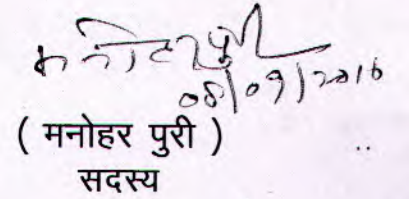 मनोहर पुरी
08/09/2016
( मनोहर पुरी )
सदस्य